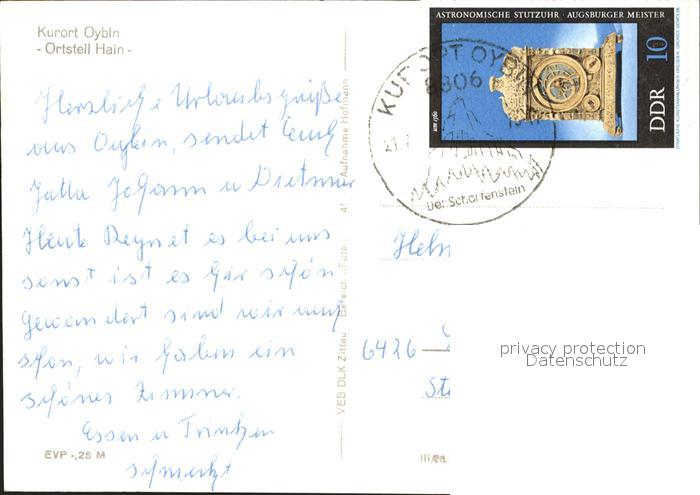 Kurort Oybin
- Ortsteil Hain -
Herzliche Urlaubsgrüße
aus Oybin, sendet Euch
Jutta Johann u Dietmar
Heute Regnet es bei uns
sonst ist es hir schön
Gewandert sind wir auch
schon, wir haben ein
schönes Zimmer.
Essen u Trinken
schmeckt
EVP -,25 M
VEB DLK Zittau Bereich Foto
41 Aufnahme Hofmann
ASTRONOMISCHE STUTZUHR · AUGSBURGER MEISTER
um 1560
DDR 10
KURORT OYBIN
8806
21.7
Der Scharfenstein
6426 —
privacy protection
Datenschutz